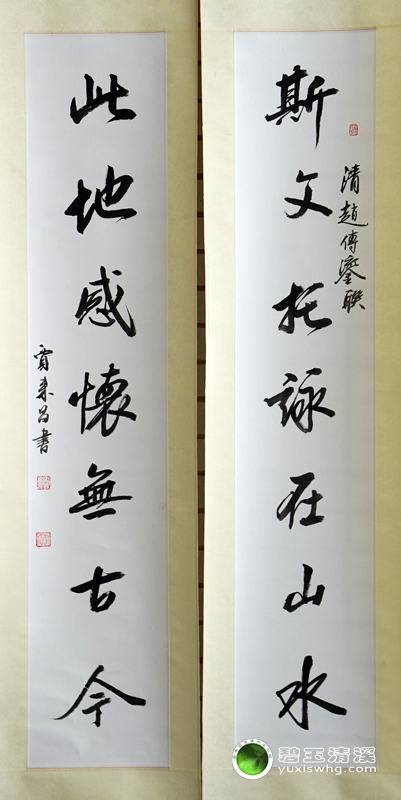 斯文托詠在山水
清趙傅鎏聯
此地感懷無古今
賈來昌書
碧玉清溪
yuxiswhg.com